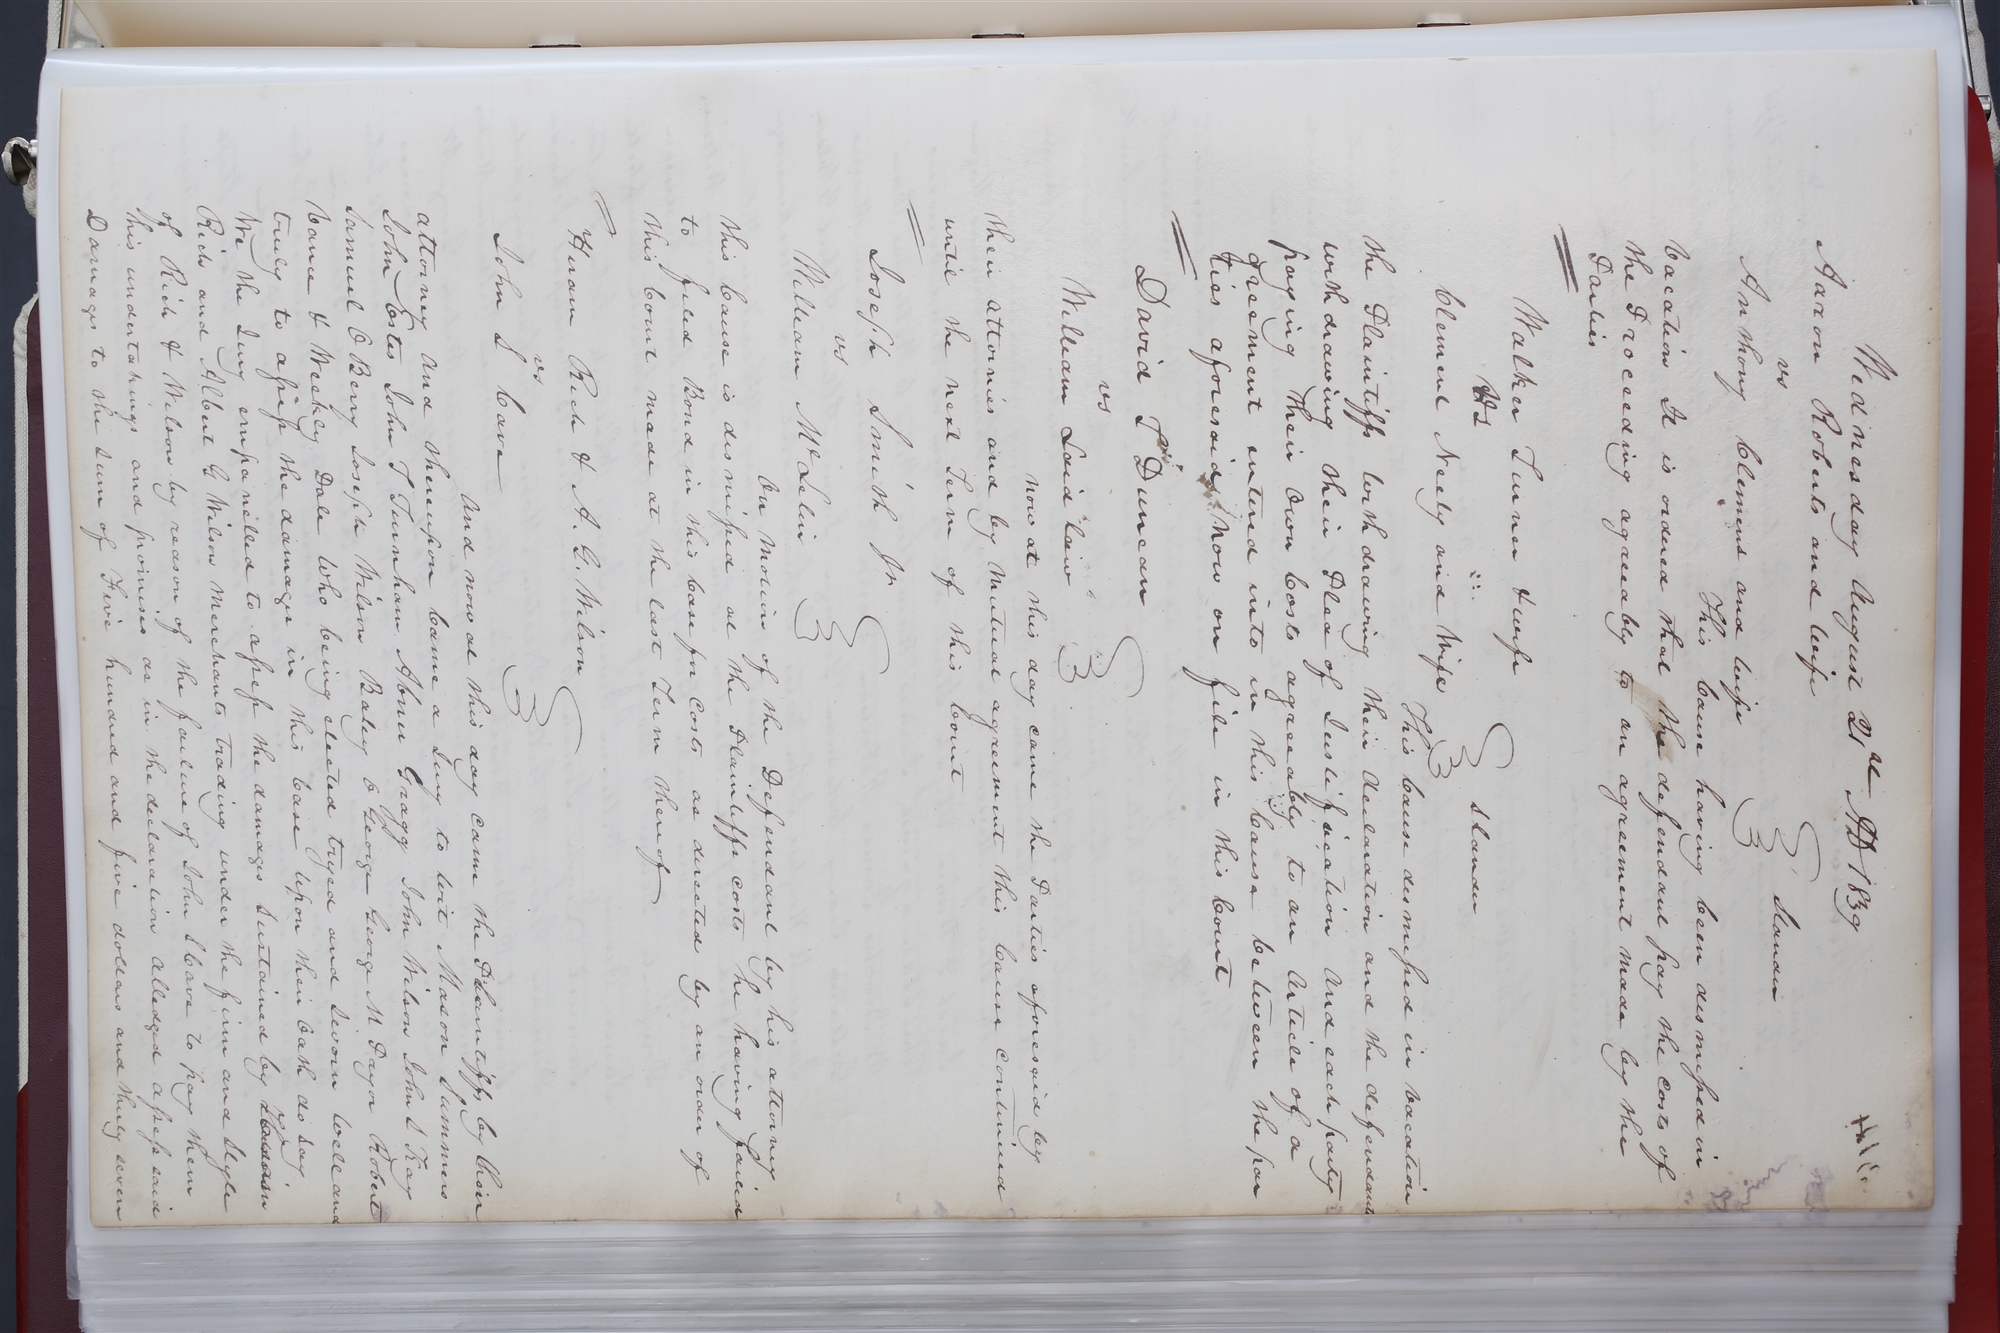 Wednesday August 21st AD 1839
Aaron Roberts and wife
vs Slander
Anthony Clement and wife
This Cause having been dismissed in
vacation It is ordered that the defendant pay the costs of
the Proceeding agreeably to an agreement made by the
Parties
Walker Turner & wife
vs Slander
Clement Neely and Wife
This Cause dismissed in vacation
the Plaintiffs withdrawing their declaration and the defendants
withdrawing their Plea of Justification and each party
paying their own costs agreeably to an Article of a
greement entered into in this Cause between the par
ties aforesaid now on file in this Court
David T Duncan
vs
William Laid law
now at this day came the Parties aforesaid by
their attornies and by mutual agreement this Cause continued
until the next Term of this Court
Joseph Smith Jr
vs
William McLelin
On motion of the Defendant by his attorney
this cause is dismissed at the Plaintiffs costs he having failed
to filed Bond in this Case for costs as directed by an order of
this Court made at the last Term thereof
Hiram Rich & A. G. Wilson
vs
John L Cave
And now at this day came the Plaintiffs by their
attorney and thereupon came a Jury to wit Mason Summers
John Estes John T Turnham Abner Gragg John Wilson John S Ray
Samuel O Berry Joseph Wilson Baley C George George M Pryor Robert
Cowne & Weekly Dale who being elected tryed and sworn well and
truly to assess the damages in this Case upon their oath do say
We the Jury empanelled to assess the damages sustained by Hiram
Rich and Albert G Wilson merchants trading under the firm and style
of Rich & Wilson by reason of the failure of John L Cave to pay them
his undertakings and promises as in the declaration alledged assess said
Damages to the sum of Five hundred and five dollars and thirty seven